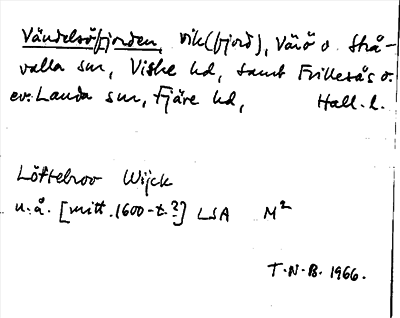 Vändelsöfjorden, vik (fjord), Värö o. Strå-
valla sn, Viske hd, samt Frillesås o.
ev. Landa sn, Fjäre hd, Hall. l.
Löftebroo Wijck
u.å. [mitt. 1600-t.?] LSA M²
T.N.B. 1966.